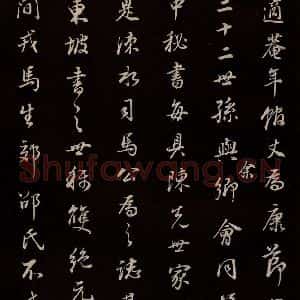 適菴年館丈為康節
二十二世孫與余鄉會同
中秘書每具陳先世家
是涑水司馬公為之誌其
東坡書之世稱雙絕元
間戎馬生郊邵氏不
Shufawang.CN